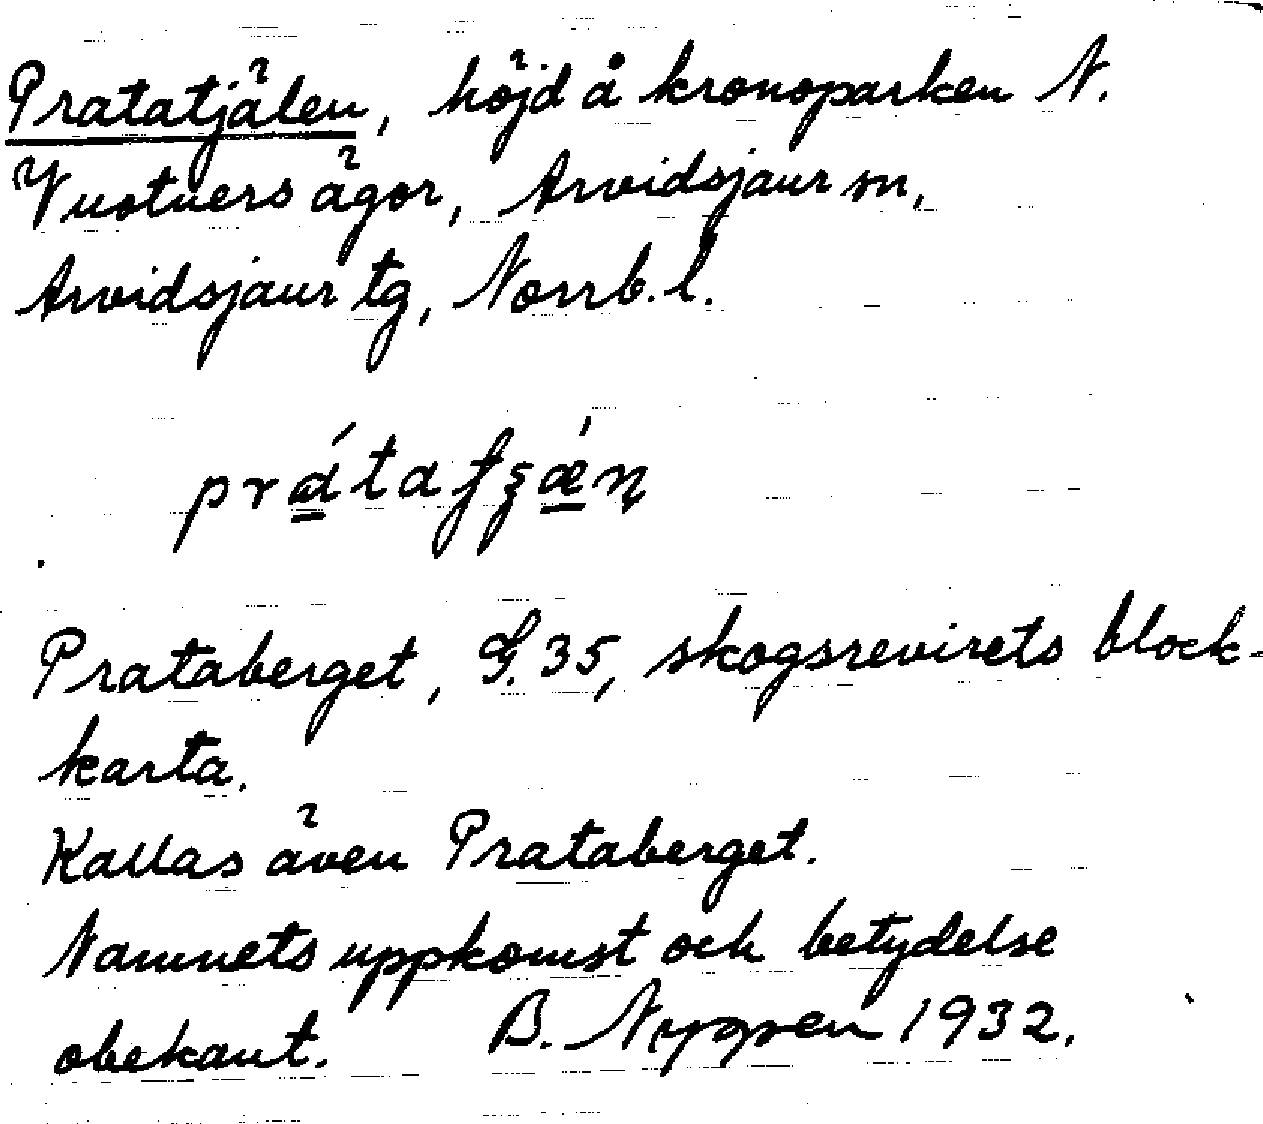 Pratatjälen, höjd å kronoparken N.
Vuotners ägor, Arvidsjaur sn,
Arvidsjaur tg, Norrb. l.
Prataberget, G. 35, skogsrevirets block-
karta.
Kallas även Prataberget.
Namnets uppkomst och betydelse
obekant. B. Nygren 1932.